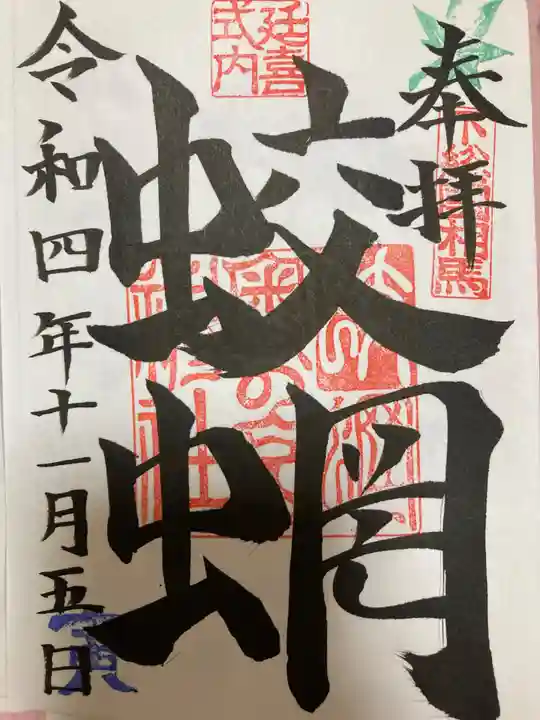 奉拝
下総国相馬
延喜
式内
蛟蝄
神社
令和四年十一月五日